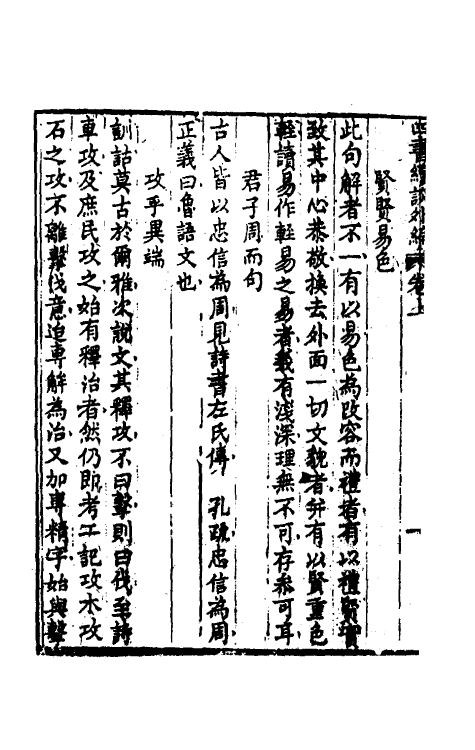 四書續談外編 卷上
賢賢易色
此句解者不一有以易色為改容而禮者有以禮賢實
致其中心恭敬換去外面一切文貌者并有以賢重色
輕讀易作輕易之易者義有淺深理無不可存參可耳
君子周而句
古人皆以忠信為周見詩書左氏傳 孔疏忠信為周
正義曰魯語文也
攻乎異端
訓詁莫古於爾雅次說文其釋攻不曰擊則曰伐至詩
車攻及庶民攻之始有釋治者然仍即考工記攻木攻
石之攻不離擊伐意迨專解為治又加專精字始與擊